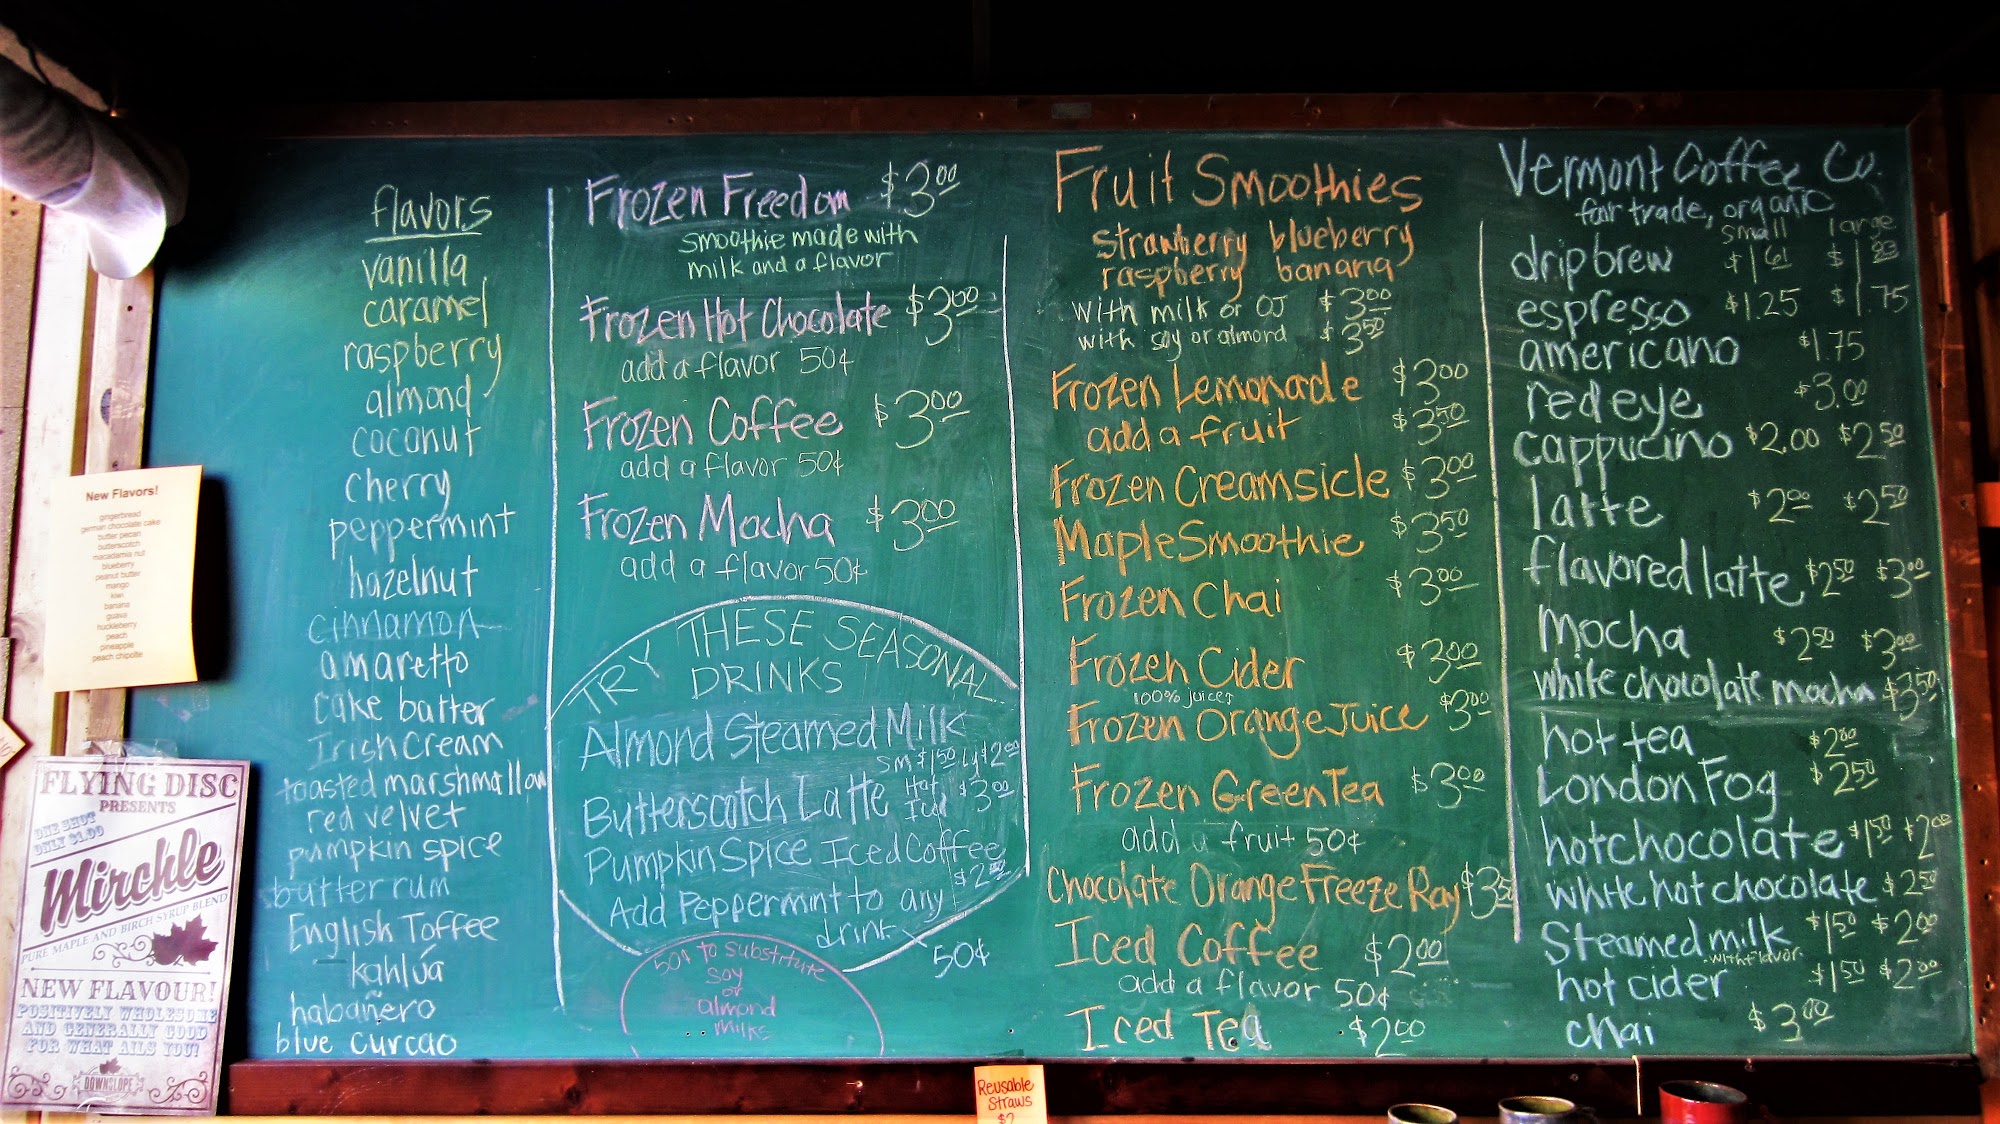 flavors
vanilla
caramel
raspberry
almond
coconut
cherry
peppermint
hazelnut
cinnamon
amaretto
cake batter
Irish Cream
toasted marshmallow
red velvet
pumpkin spice
butter rum
English Toffee
kahlúa
habañero
blue curcao
Frozen Freedom $3.00
smoothie made with
milk and a flavor
Frozen Hot Chocolate $3.00
add a flavor 50¢
Frozen Coffee $3.00
add a flavor 50¢
Frozen Mocha $3.00
add a flavor 50¢
TRY THESE SEASONAL
DRINKS
Almond Steamed Milk
sm $1.50 Lg $2.00
Butterscotch Latte Hot Iced $3.00
Pumpkin Spice Iced Coffee
Add Peppermint to any
drink 50¢
50¢ to substitute
soy
or
almond
milks
Fruit Smoothies
strawberry blueberry
raspberry banana
with milk or OJ $3.00
with soy or almond $3.50
Frozen Lemonade $3.00
add a fruit $3.50
Frozen Creamsicle $3.00
Maple Smoothie $3.50
Frozen Chai $3.00
Frozen Cider $3.00
100% juices
Frozen Orange Juice $3.00
Frozen Green Tea $3.00
add a fruit 50¢
Chocolate Orange Freeze Ray $3.50
Iced Coffee $2.00
add a flavor 50¢
Iced Tea $2.00
Vermont Coffee Co.
fair trade, organic
small large
drip brew $1.61 $1.
espresso $1.25 $1.75
americano $1.75
redeye $3.00
cappucino $2.00 $2.50
latte $2.00 $2.50
flavored latte $2.50 $3.00
mocha $2.50 $3.00
white chocolate mocha $3.50
hot tea $2.00
London Fog $2.50
hot chocolate $1.50 $2.00
white hot chocolate $2.50
Steamed milk $1.50 $2.00
with flavor
hot cider $1.50 $2.00
chai $3.00
New Flavors!
gingerbread
german chocolate cake
butter pecan
butterscotch
macadamia nut
blueberry
peanut butter
mango
kiwi
banana
guava
huckleberry
peach
pineapple
peach chipotle
FLYING DISC
PRESENTS
ONE SHOT
ONLY $1.00
Mirchle
PURE MAPLE AND BIRCH SYRUP BLEND
NEW FLAVOUR!
POSITIVELY WHOLESOME
AND GENERALLY GOOD
FOR WHAT AILS YOU!
DOWNSLOPE
Reusable
Straws
$2